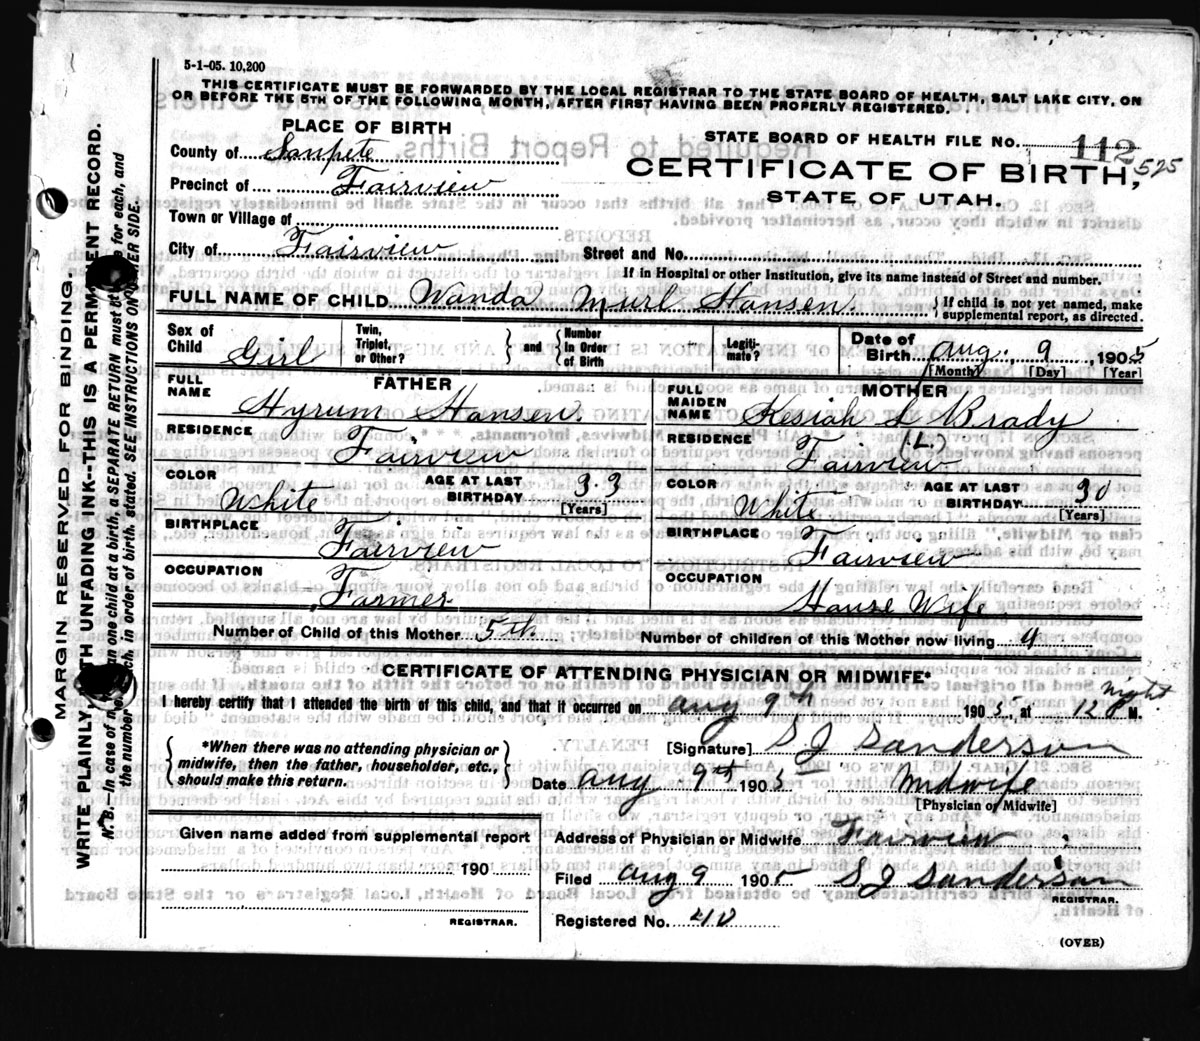 5-1-05. 10,200
THIS CERTIFICATE MUST BE FORWARDED BY THE LOCAL REGISTRAR TO THE STATE BOARD OF HEALTH, SALT LAKE CITY, ON
OR BEFORE THE 5TH OF THE FOLLOWING MONTH, AFTER FIRST HAVING BEEN PROPERLY REGISTERED.
PLACE OF BIRTH
County of Sanpete
Precinct of Fairview
Town or Village of
City of Fairview
STATE BOARD OF HEALTH FILE No. 112 525
CERTIFICATE OF BIRTH,
STATE OF UTAH.
Street and No.
If in Hospital or other Institution, give its name instead of Street and number.
FULL NAME OF CHILD Wanda Murl Hansen. { If child is not yet named, make supplemental report, as directed.
Sex of Child Girl
Twin, Triplet, or Other? } and { Number in Order of Birth
Legiti-mate?
Date of Birth Aug. 9 1905
[Month] [Day] [Year]
FATHER
FULL NAME Hyrum Hansen.
RESIDENCE Fairview
COLOR White
AGE AT LAST BIRTHDAY 33
[Years]
BIRTHPLACE Fairview
OCCUPATION Farmer
MOTHER
FULL MAIDEN NAME Kesiah L Brady
(L)
RESIDENCE Fairview
COLOR White
AGE AT LAST BIRTHDAY 30
[Years]
BIRTHPLACE Fairview
OCCUPATION House Wife
Number of Child of this Mother 5th
Number of children of this Mother now living 4
CERTIFICATE OF ATTENDING PHYSICIAN OR MIDWIFE*
I hereby certify that I attended the birth of this child, and that it occurred on Aug 9th 1905, at 12 night M.
{ *When there was no attending physician or midwife, then the father, householder, etc., should make this return. }
[Signature] S J Sanderson
Date Aug 9th 1905 Midwife
[Physician or Midwife]
Given name added from supplemental report
190
REGISTRAR.
Address of Physician or Midwife Fairview
Filed Aug 9 1905 S J Sanderson
REGISTRAR.
Registered No. 40
(OVER)
MARGIN RESERVED FOR BINDING.
WRITE PLAINLY, WITH UNFADING INK--THIS IS A PERMANENT RECORD.
N. B.--In case of more than one child at a birth, a SEPARATE RETURN must be made for each, and
the number of each, in order of birth, stated. SEE INSTRUCTIONS ON OTHER SIDE.